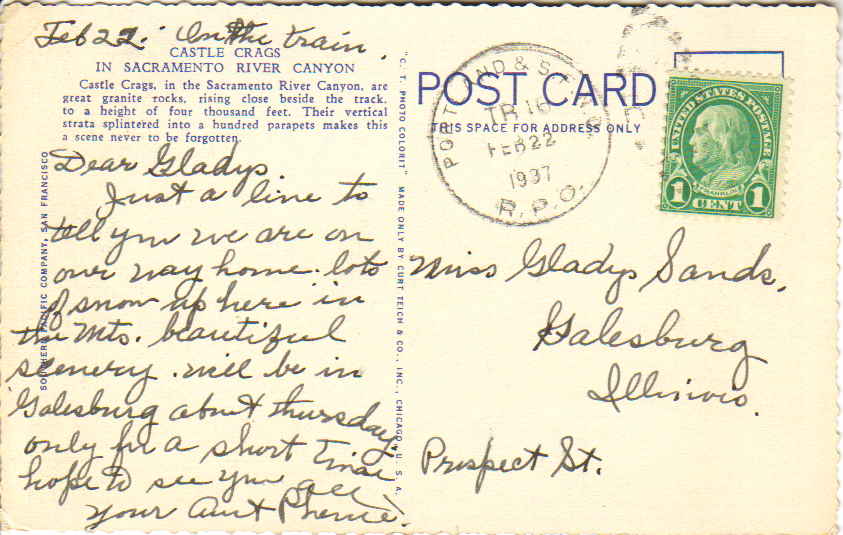 Feb 22. On the train.
CASTLE CRAGS
IN SACRAMENTO RIVER CANYON
Castle Crags, in the Sacramento River Canyon, are
great granite rocks, rising close beside the track,
to a height of four thousand feet. Their vertical
strata splintered into a hundred parapets makes this
a scene never to be forgotten.
Dear Gladys.
Just a line to
tell you we are on
our way home. lots
of snow up here in
the Mts. beautiful
scenery. will be in
Galesburg about thursday.
only for a short time
hope to see you all
your Aunt Phenie.
SOUTHERN PACIFIC COMPANY, SAN FRANCISCO
"C. T. PHOTO COLORIT" MADE ONLY BY CURT TEICH & CO., INC., CHICAGO, U. S. A.
POST CARD
THIS SPACE FOR ADDRESS ONLY
TR 16
FEB 22
1937
R.P.O.
UNITED STATES POSTAGE
FRANKLIN
1 CENT 1
Miss Gladys Sands.
Galesburg
Illinois.
Prospect St.